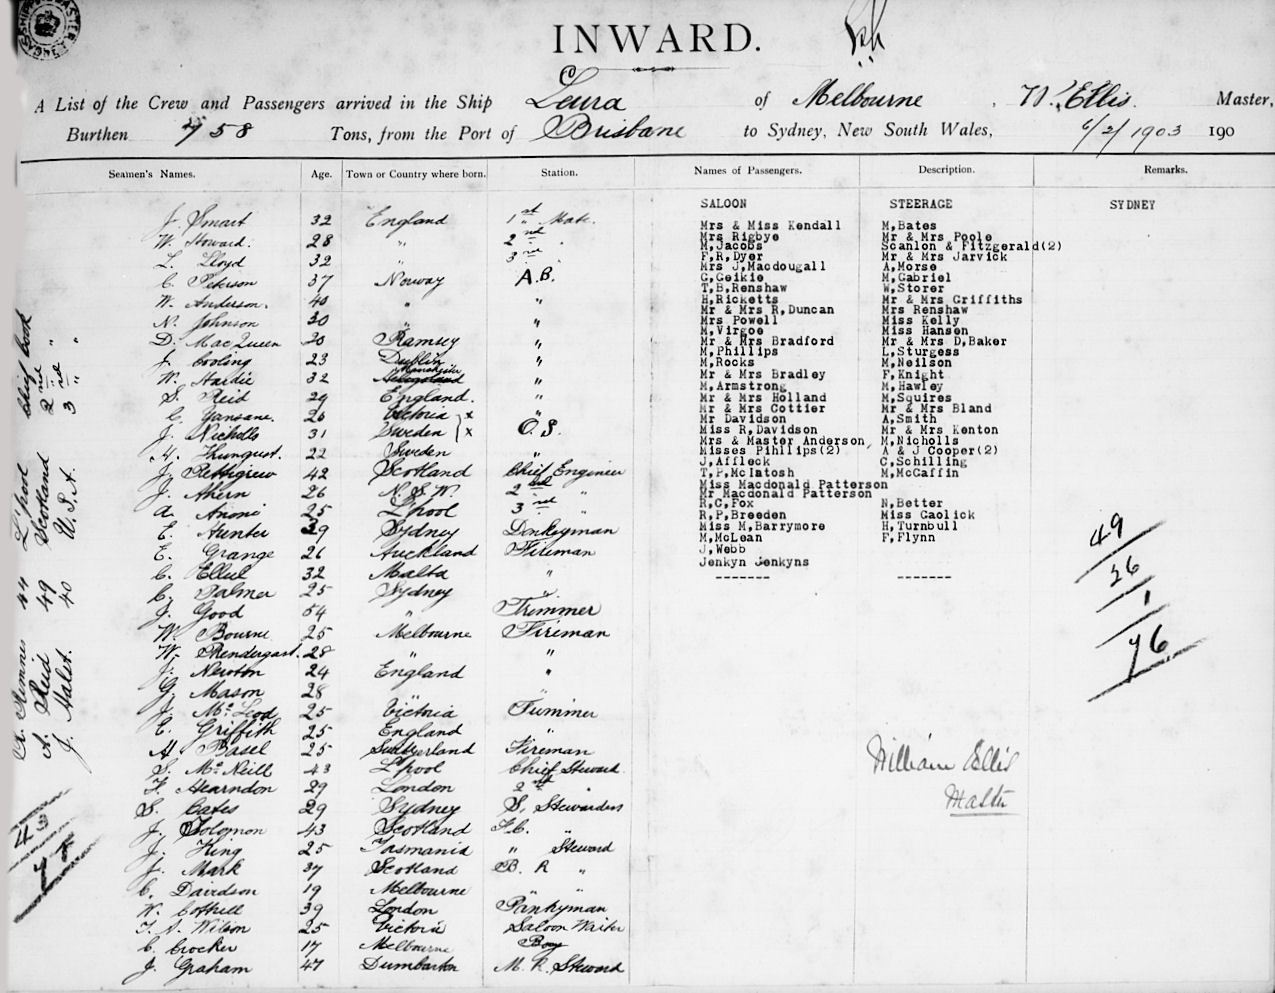 INWARD.
A List of the Crew and Passengers arrived in the Ship Leura of Melbourne, W. Ellis Master,
Burthen 758 Tons, from the Port of Brisbane to Sydney, New South Wales, 6/2/1903 190
Seamen's Names. Age. Town or Country where born. Station. Names of Passengers. Description. Remarks.
SALOON STEERAGE SYDNEY
J. Smart 32 England 1st Mate.
W. Howard. 28 " 2nd "
L. Lloyd 32 " 3rd "
C. Peterson 37 Norway A.B.
W. Anderson. 40 " "
N. Johnson 30 " "
D. MacQueen 30 Ramsey "
J. Cooling 23 Dublin "
W. Hardie 32 "
S. Reid 29 England. "
C. Jansane. 26 Victoria x "
J. Nicholls 31 Sweden x O.S.
H. Thunqust. 22 Sweden "
J. Pettigrew 42 Scotland Chief Engineer
J. Ahern 26 N.S.W. 2nd "
A. Anoni 25 L'pool 3rd "
E. Hunter 39 Sydney Donkeyman
E. Grange 26 Auckland Fireman
C. Ellul 32 Malta "
C. Palmer 25 Sydney "
J. Good 54 " Trimmer
W. Bourne 25 Melbourne Fireman
W. Prendergast. 28 " "
J. Newton 24 England "
G. Mason 28 " "
J. McLeod 25 Victoria Trimmer
E. Griffith 25 England "
H. Basel 25 Switzerland Fireman
S. McNeill 43 L'pool Chief Steward
F. Hearndon 29 London 2nd "
S. Cates 29 Sydney S. Stewardess
J. Solomon 43 Scotland F.C. "
J. King 25 Tasmania " Steward
J. Mark 37 Scotland B. R "
C. Davidson 19 Melbourne " "
W. Cothill 39 London Pantryman
T. A. Wilson 25 Victoria Saloon Waiter
C. Crocker 17 Melbourne Boy
J. Graham 47 Dumbarton M. R. Steward
Mrs & Miss Kendall
Mrs Rigbye
M,Jacobs
F,R,Dyer
Mrs J,Macdougall
G,Geikie
T,B,Renshaw
H,Ricketts
Mr & Mrs R,Duncan
Mrs Powell
M,Virgoe
Mr & Mrs Bradford
M,Phillips
M,Rocks
Mr & Mrs Bradley
M,Armstrong
Mr & Mrs Holland
Mr & Mrs Cottier
Mr Davidson
Miss R,Davidson
Mrs & Master Anderson,
Misses Pihllips(2)
J,Affleck
T,P,McIntosh
Miss Macdonald Patterson
Mr Macdonald Patterson
R,C,Fox
R,P,Breeden
Miss M,Barrymore
M,McLean
J,Webb
Jenkyn Jenkyns
-------
M,Bates
Mr & Mrs Poole
Scanlon & Fitzgerald(2)
Mr & Mrs Jarvick
A,Morse
M,Gabriel
W,Storer
Mr & Mrs Griffiths
Mrs Renshaw
Miss Kelly
Miss Hansen
Mr & Mrs D,Baker
L,Sturgess
M,Neilson
F,Knight
M,Hawley
M,Squires
Mr & Mrs Bland
A,Smith
Mr & Mrs Kenton
M,Nicholls
A & J Cooper(2)
C,Schilling
M,McCaffin
N,Better
Miss Gaolick
H,Turnbull
F,Flynn
-------
49
26
1
76
William Ellis
Master
44 L'pool Chief Cook
A. Reid 49 Scotland 2nd "
J. Halet. 40 U.S.A. 3rd "
43